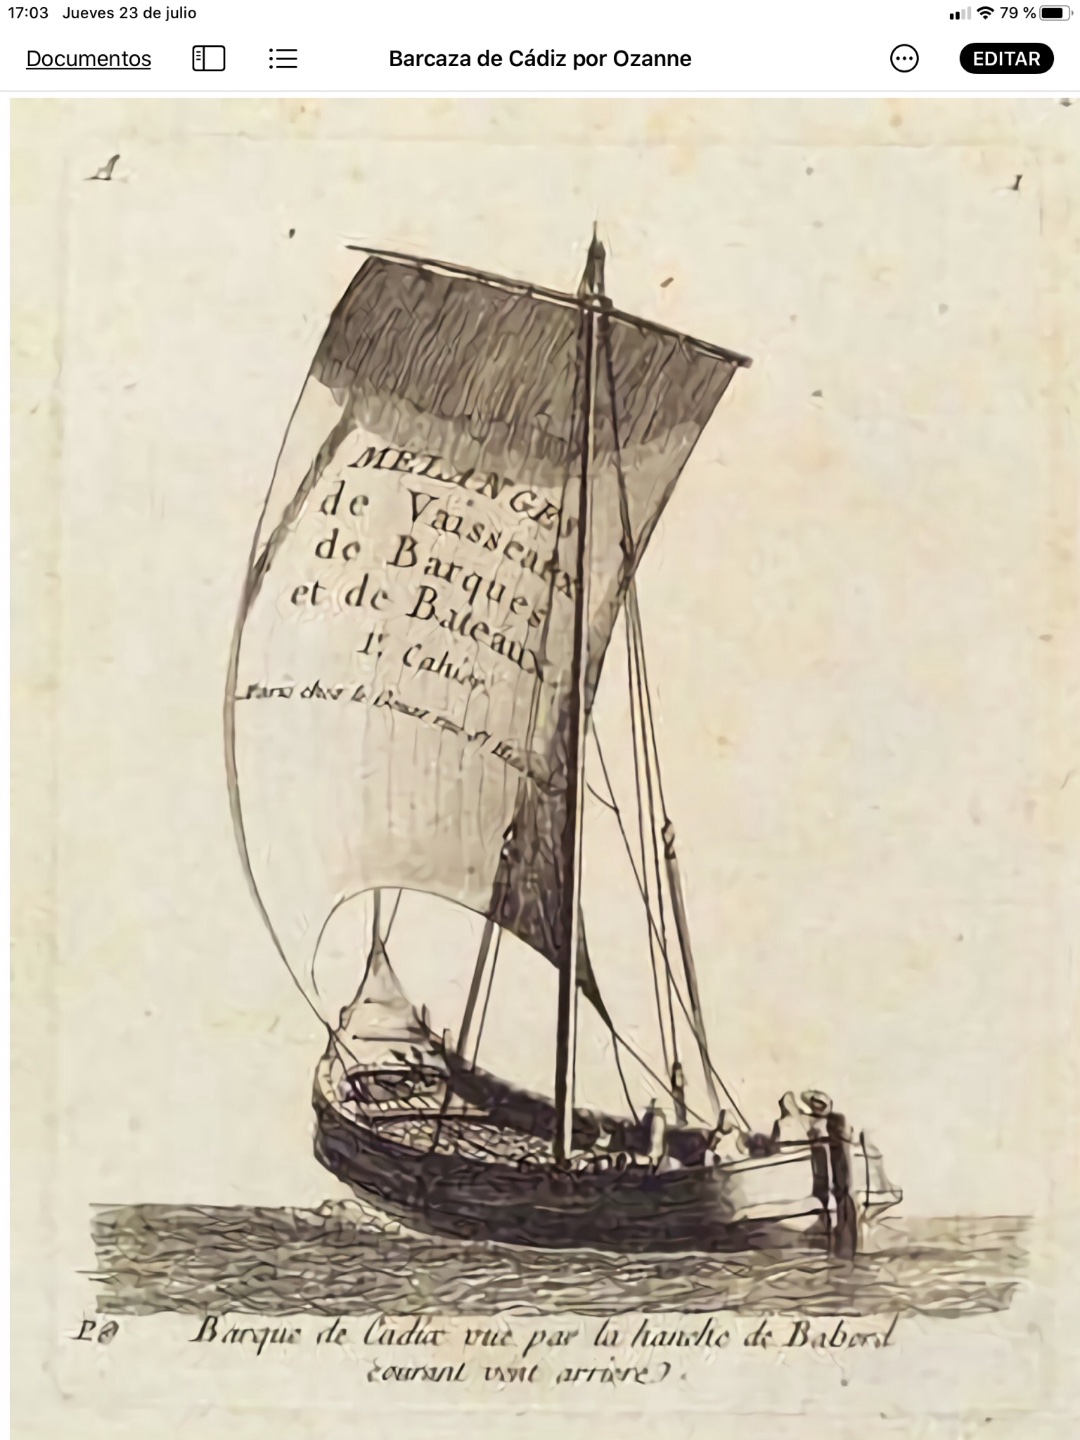 17:03 Jueves 23 de julio
79 %
Documentos
Barcaza de Cádiz por Ozanne
EDITAR
A.
1
MELANGES
de Vaisseaux
de Barques
et de Bateaux
1.r Cahier
Paris chez le rue St
P.O
Barque de Cadix vue par la hanche de Babord
courant vent arriere